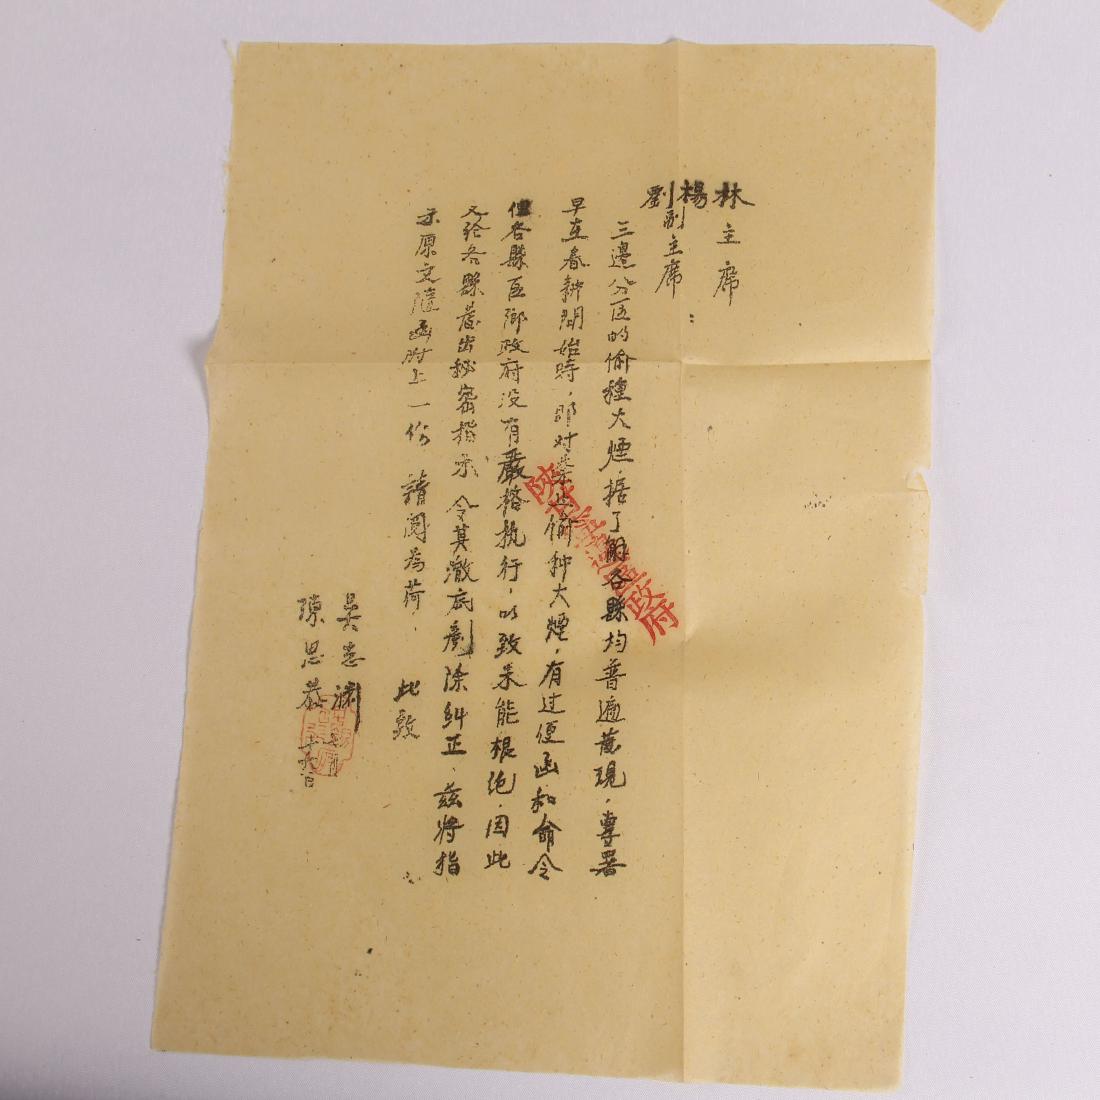 林主席
楊
劉副主席：
三邊分区的偷種大煙，据了解各縣均普遍蔓現，專署
早在春耕開始時，即对禁止偷种大煙，有过便函和命令
但各縣区鄉政府没有嚴格执行，以致未能根绝，因此
又给各縣發出秘密指示 令其澈底剷除糾正，兹將指
示原文隨函附上一份 請閲為荷，此致
吴志渊
陳思恭
十九日
陝甘寧邊區政府